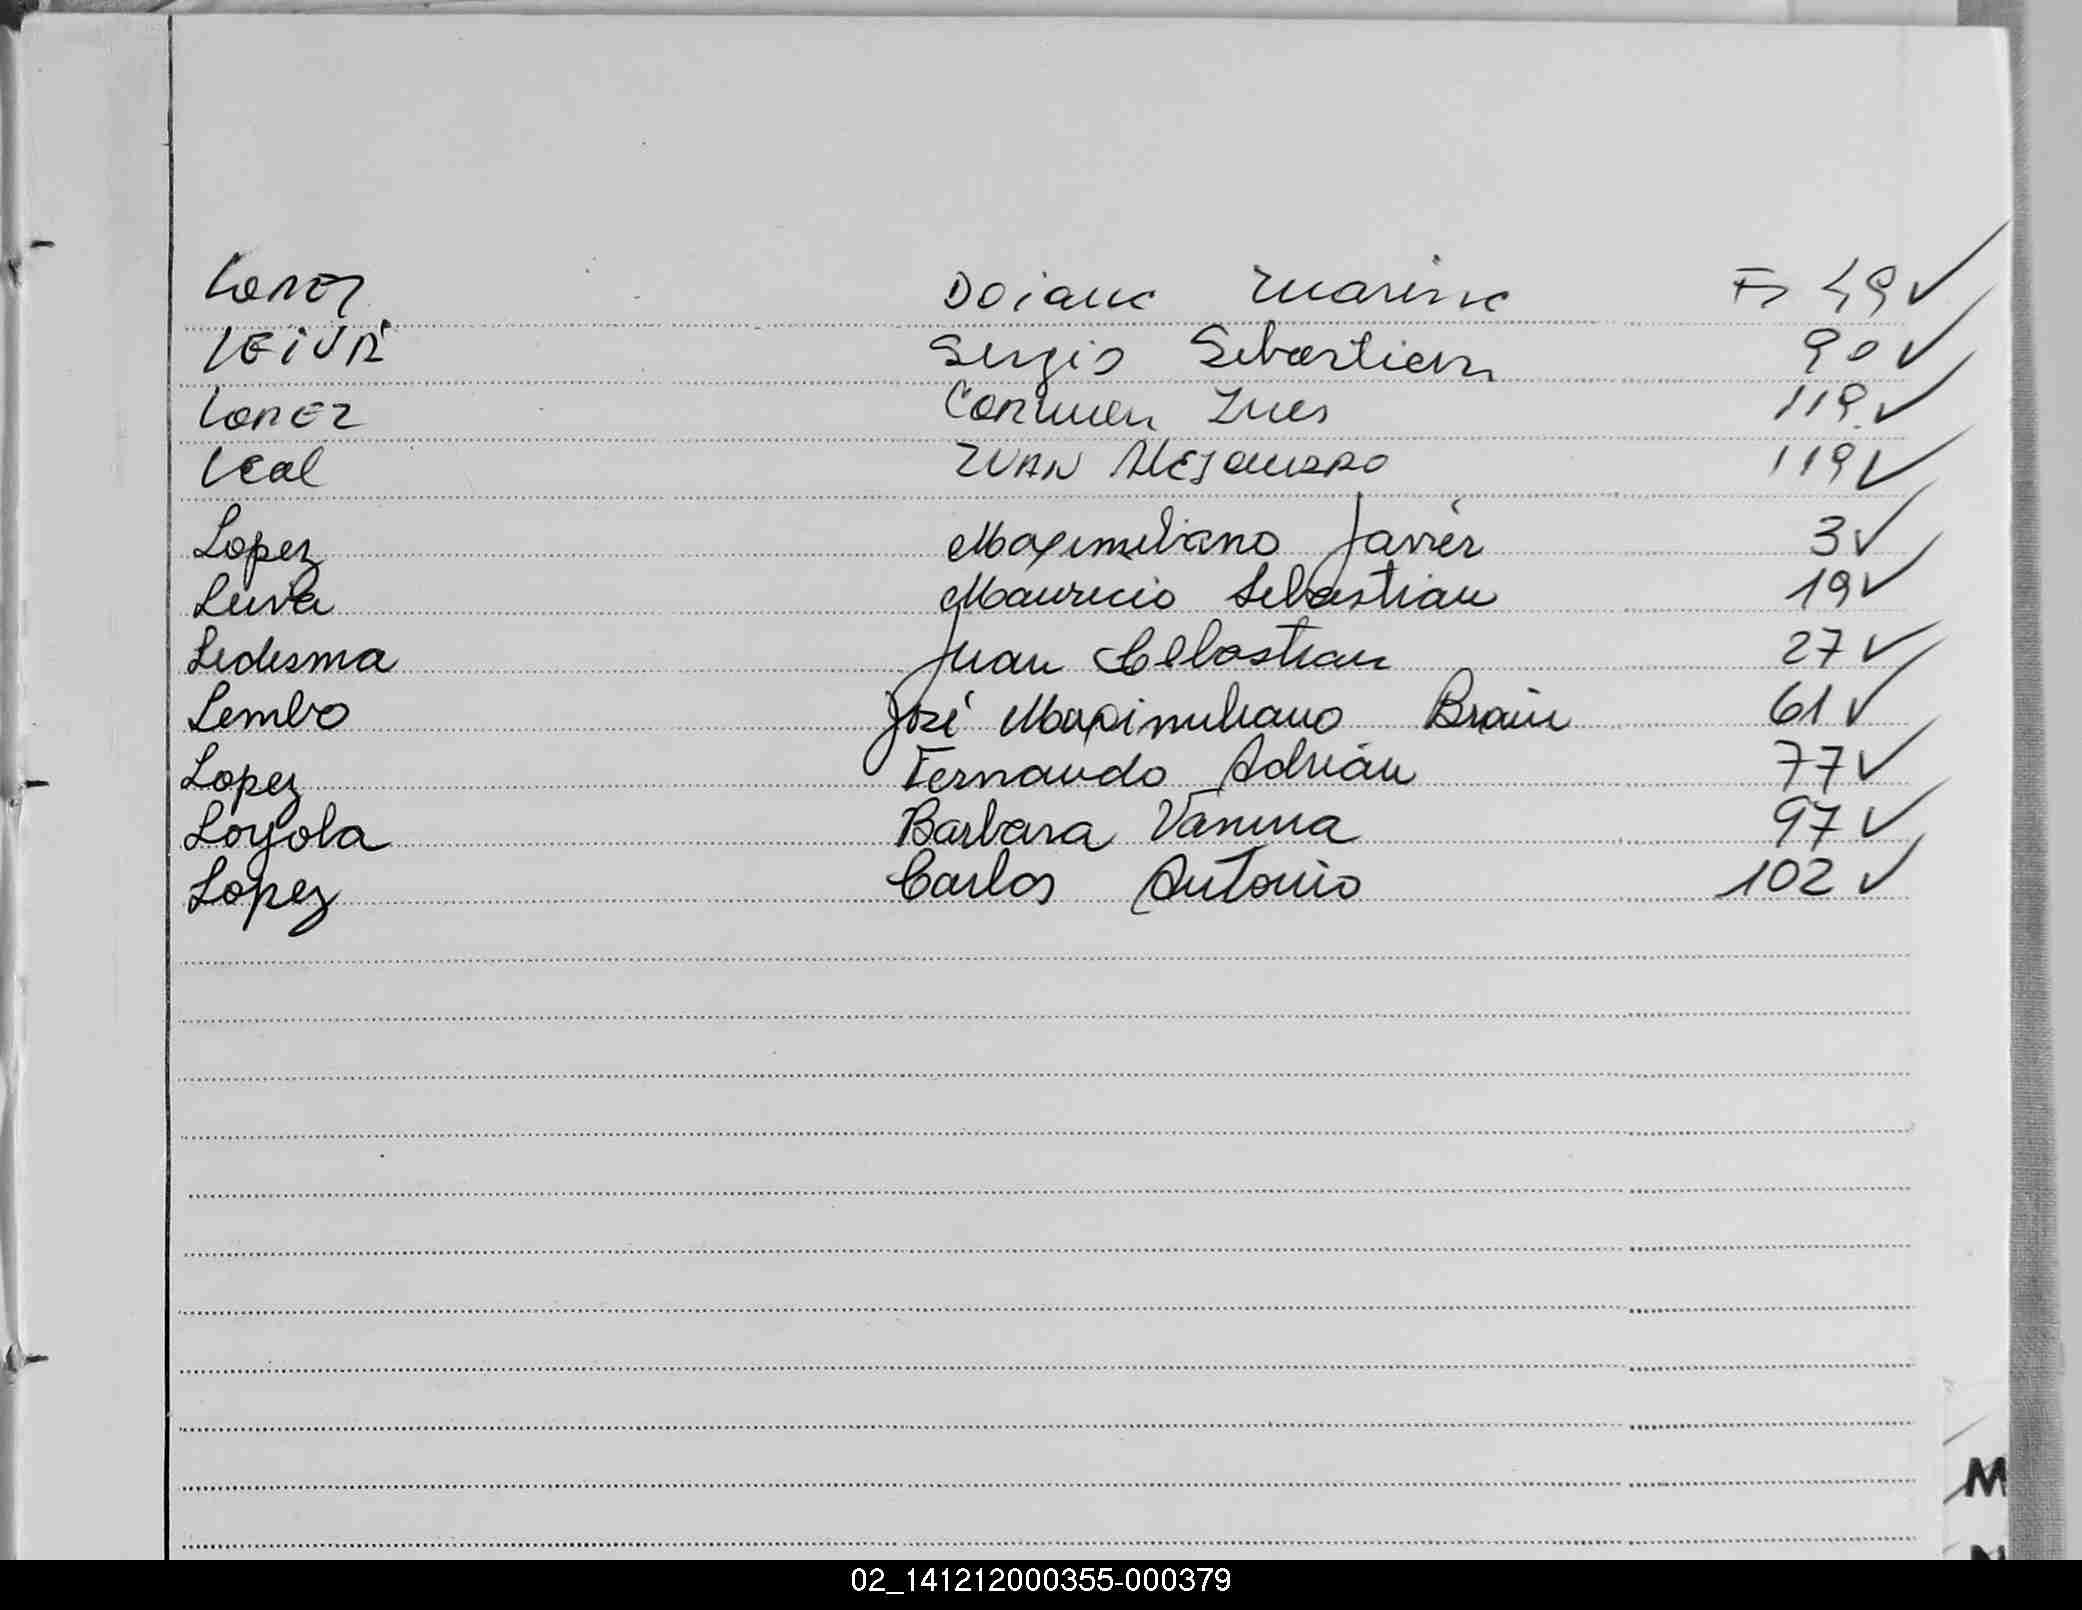 Lopez Daiana Marina Fs 49 ✓
LEIVA Sergio Sebastian 90 ✓
LOPEZ Carmen Ines 119 ✓
Leal IVAN ALEJANDRO 119 ✓
Lopez Maximiliano Javier 3 ✓
Leiva Mauricio Sebastian 19 ✓
Ledesma Juan Sebastian 27 ✓
Lembo José Maximiliano Brain 61 ✓
Lopez Fernando Adrián 77 ✓
Loyola Barbara Vanina 97 ✓
Lopez Carlos Antonio 102 ✓
M
02_141212000355-000379